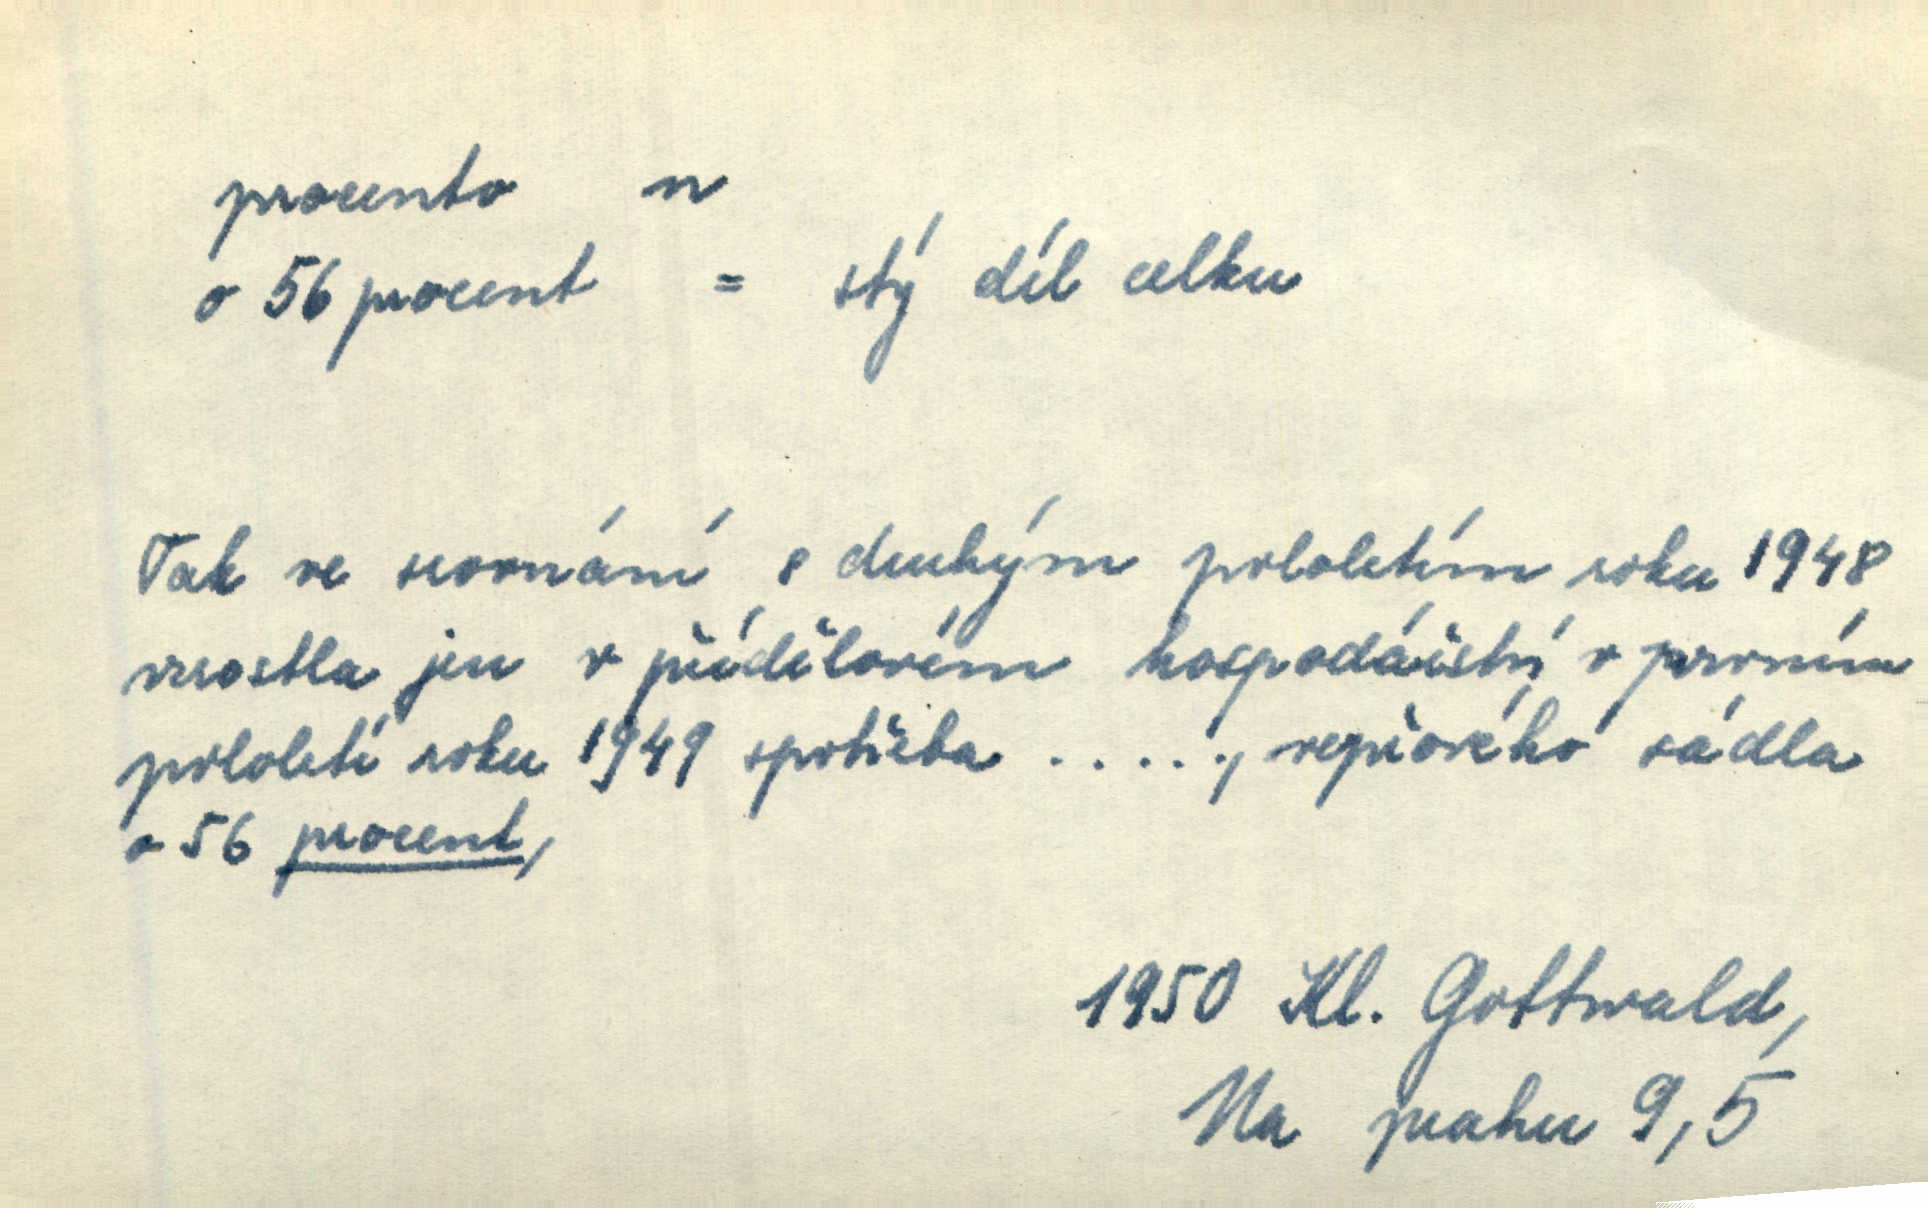 procento n
o 56 procent = stý díl celku
Tak ve srovnání s druhým pololetím roku 1948
vzrostla jen v přídělovém hospodářství v prvním
pololetí roku 1949 spotřeba ....., vepřového sádla
o 56 procent,
1950 Kl. Gottwald,
Na prahu 9,5